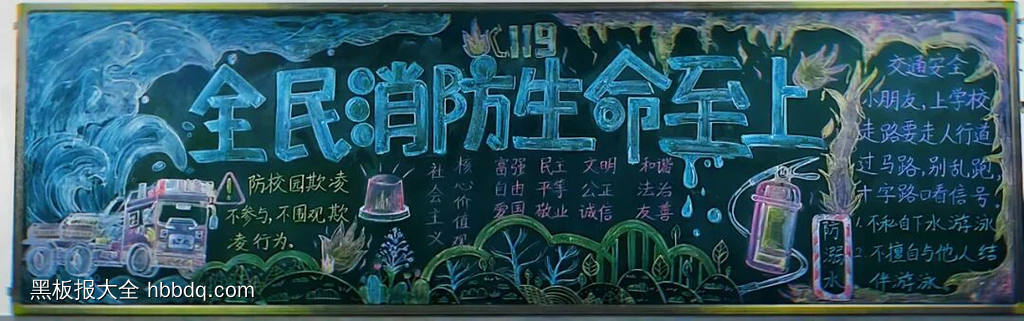 119
全民消防生命至上
防校园欺凌
不参与,不围观欺
凌行为。
社会主义
核心价值观
富强 民主 文明 和谐
自由 平等 公正 法治
爱国 敬业 诚信 友善
交通安全
小朋友,上学校,
走路要走人行道,
过马路,别乱跑,
十字路口看信号。
防溺水
1.不私自下水游泳
2.不擅自与他人结
伴游泳。
黑板报大全 hbbdq.com